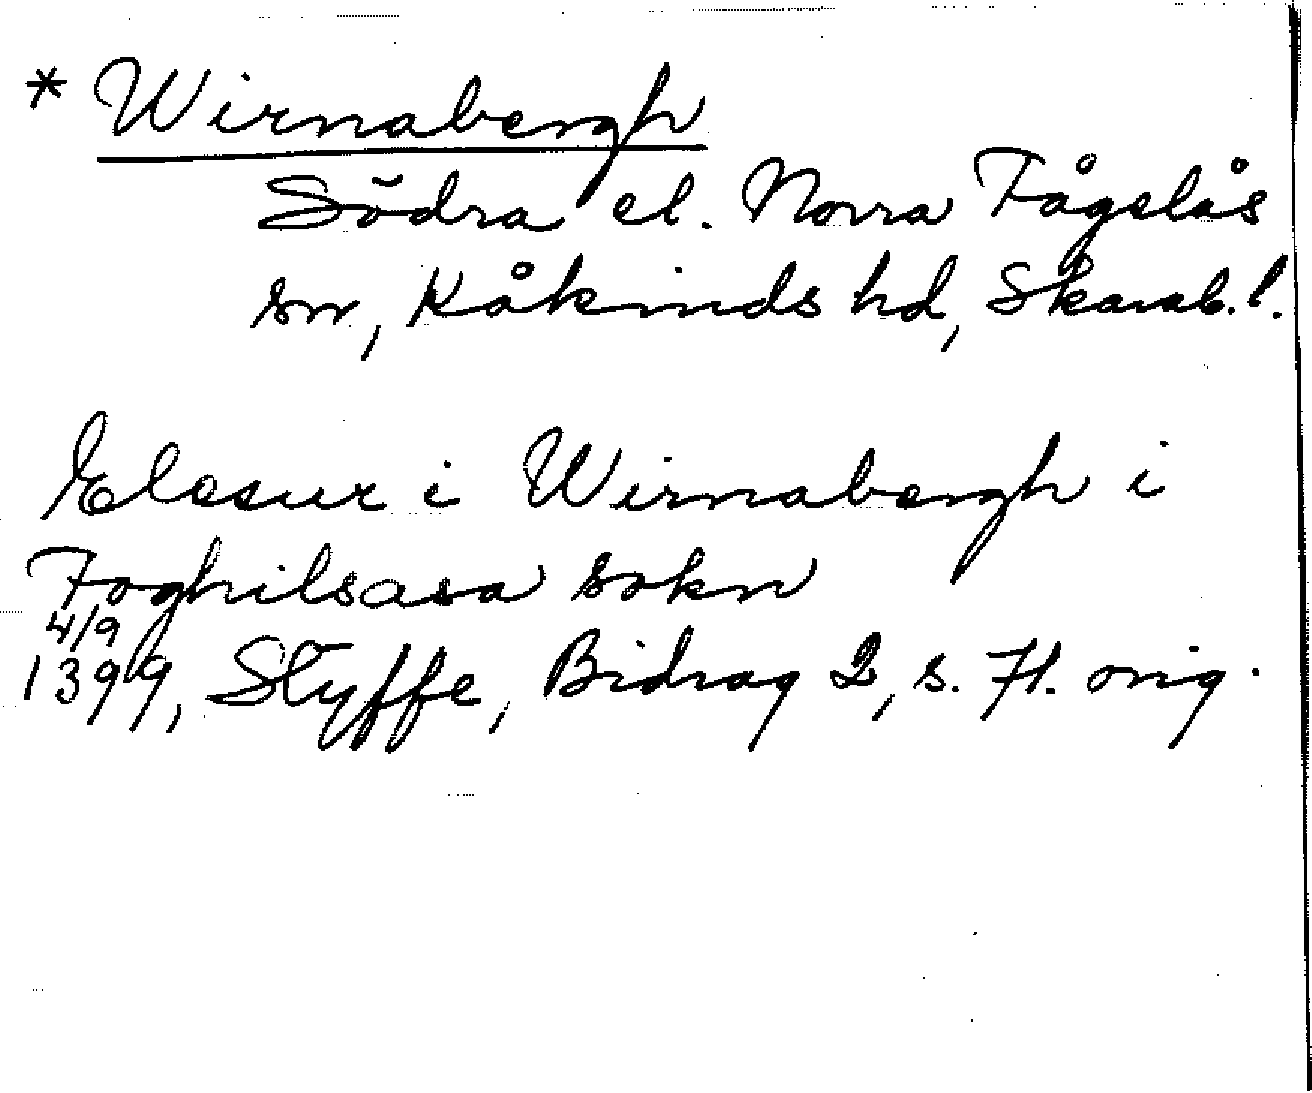 * Wirnabergh
Södra el. Norra Fågelås
sn, Kåkinds hd, Skarab. l.
Elesux i Wirnabergh i
Foghilsasa sokn
4/9
1399, Styffe, Bidrag 2, s. 71. orig.